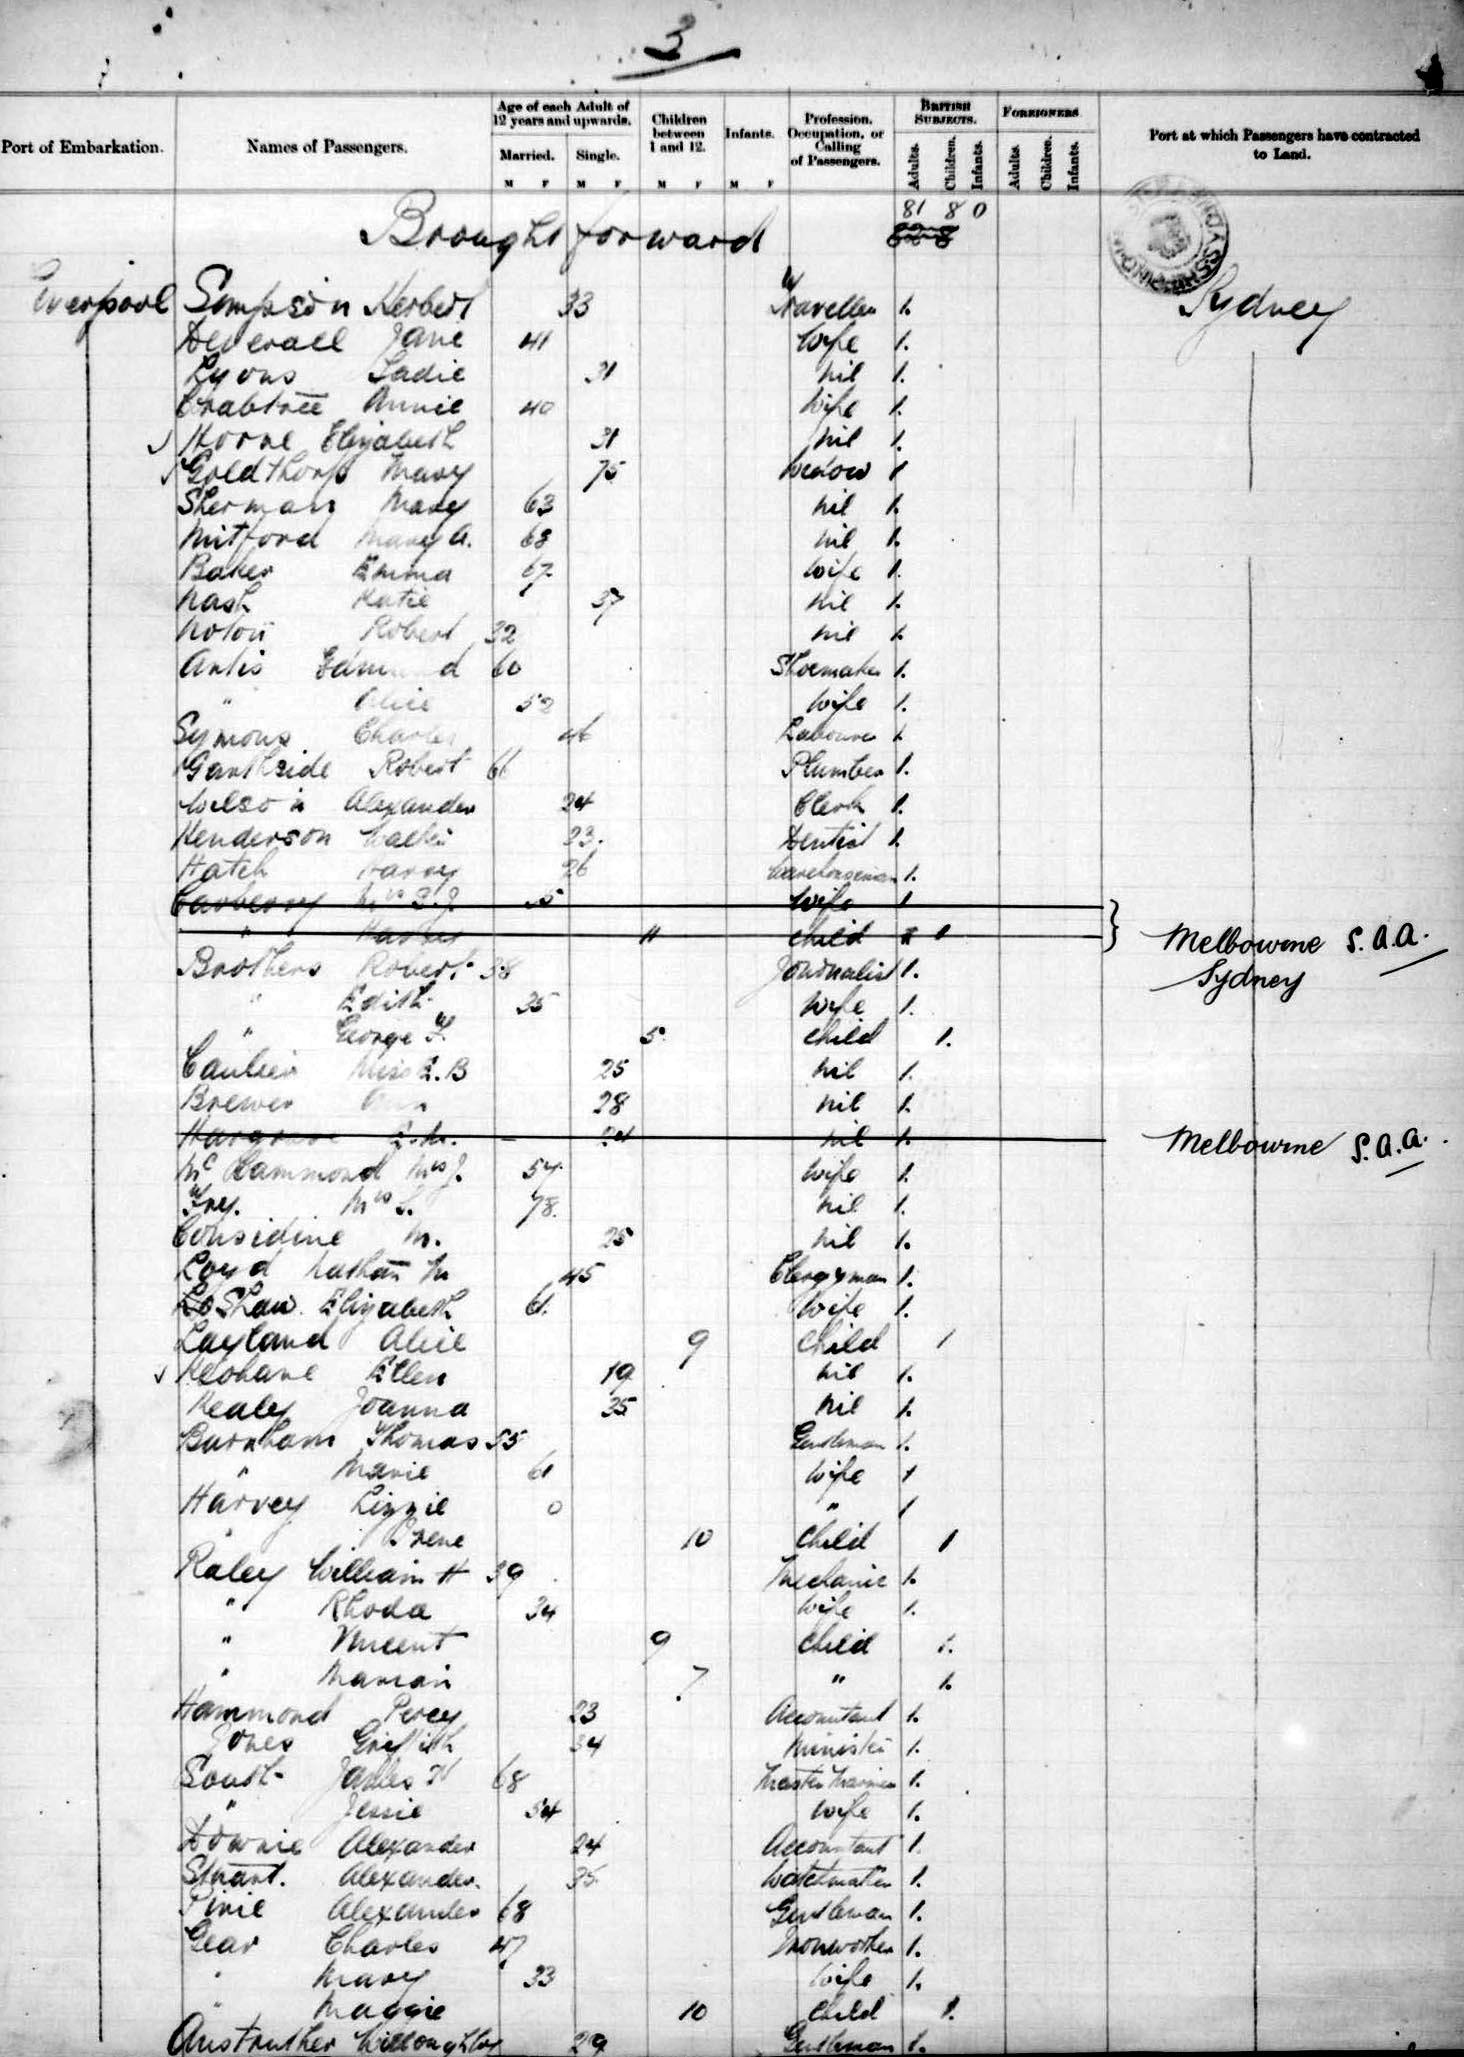 3
Port of Embarkation.
Names of Passengers.
Age of each Adult of 12 years and upwards.
Married.
Single.
M F M F
Children between 1 and 12.
M F
Infants.
M F
Profession, Occupation, or Calling of Passengers.
BRITISH SUBJECTS.
Adults. Children. Infants.
FOREIGNERS
Adults. Children. Infants.
Port at which Passengers have contracted to Land.
81 8 0
Brought forward
Liverpool Simpson Herbert 33 Traveller 1. Sydney
Deverall Jane 41 Wife 1.
Lyons Sadie 31 nil 1.
Crabtree Annie 40 Wife 1.
Horne Elizabeth 31 nil 1.
Goldthorp Mary 75 Widow 1
Sherman Mary 63 nil 1.
Mitford Mary A. 68 nil 1.
Baker Emma 67 Wife 1.
Nash Katie 37 nil 1.
Robert 32 nil 1.
Antis Edmund 60 Shoemaker 1.
" Alice 52 Wife 1.
Symons Charles 46 Labourer 1
Garthside Robert 66 Plumber 1.
Wilson Alexander 24 Clerk 1.
Henderson Walter 23. Dentist 1.
Hatch Harry 26 Warehouseman 1.
Carberry Mrs S.J. Wife 1
" child 1 Melbourne S.A.A.
Brothers Robert 38 Journalist 1. Sydney
" Edith 35 Wife 1.
" George F. 5 child 1.
Miss E.B 25 nil 1.
Brewer 28 nil 1.
Hargrave E.M. nil 1. Melbourne S.A.A.
Mc Hammond Mrs J. 54 Wife 1.
Frey. Mrs S. 78 nil 1.
Considine M. 25 nil 1.
Loyd Nathan M 45 Clergyman 1.
Shaw Elizabeth 61. Wife 1.
Layland Alice 9 child 1
Keohane Ellen 19 nil 1.
Healey Joanna 35 nil 1.
Burnham Thomas 55 Gentleman 1.
" Marie 61 Wife 1
Harvey Lizzie 0 " 1
" Irene 10 child 1
Raley William H 39 Mechanic 1.
" Rhoda 34 Wife 1.
" Vincent 9 child 1.
" Marian 7 " 1.
Hammond Percy 23 Accountant 1.
Jones Griffith 34 Minister 1.
James H 68 Master Mariner 1.
" Jessie 54 Wife 1.
Downie Alexander 24 Accountant 1.
Stuart. Alexander. 35 Watchmaker 1.
Pirie Alexander 68 Gentleman 1.
Gear Charles 47 Ironworker 1.
" Mary 33 Wife 1.
" Maggie 10 child 1.
Anstruther Willoughby 29 Gentleman 1.